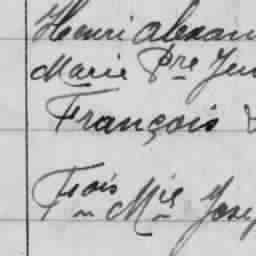 Henri Alexan
Marie Pre Jea
François
Frois Mie Jose